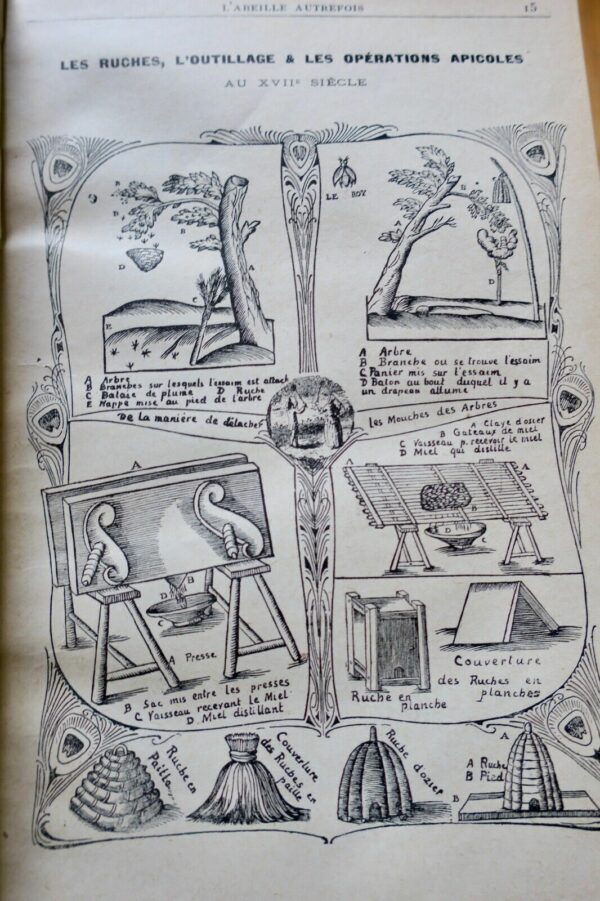 L'ABEILLE AUTREFOIS 15
LES RUCHES, L'OUTILLAGE & LES OPÉRATIONS APICOLES
AU XVIIe SIÈCLE
B
B
B
D
C
A
E
LE ROY
B
C
A
D
A Arbre
B Branches sur lesquels l'essaim est attach
C Balaie de plume D Ruche
E Nappe mise au pied de l'arbre
A Arbre
B Branche ou se trouve l'essaim
C Panier mis sur l'essaim
D Baton au bout duquel il y a
un drapeau allume
De la manière de détacher
les Mouches des Arbres
A Claye d'osier
B Gateaux de miel
C Vaisseau p. recevoir le miel
D Miel qui distille
A
B
D
C
A Presse
B Sac mis entre les presses
C Vaisseau recevant le Miel
D Miel distillant
A
A
B
D
C
Ruche en
planche
Couverture
des Ruches en
planches
Ruche en
Paille
Couverture
des Ruches en
paille
Ruche d'ozier
A
A Ruche
B Pied
B